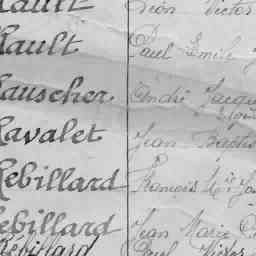 Rault Léon Victor
Rault Paul Emile
Rauscher André Jacques
Ravalet Jean Baptis
Rébillard François
Rebillard Jean Marie
Rébillard Paul Victor